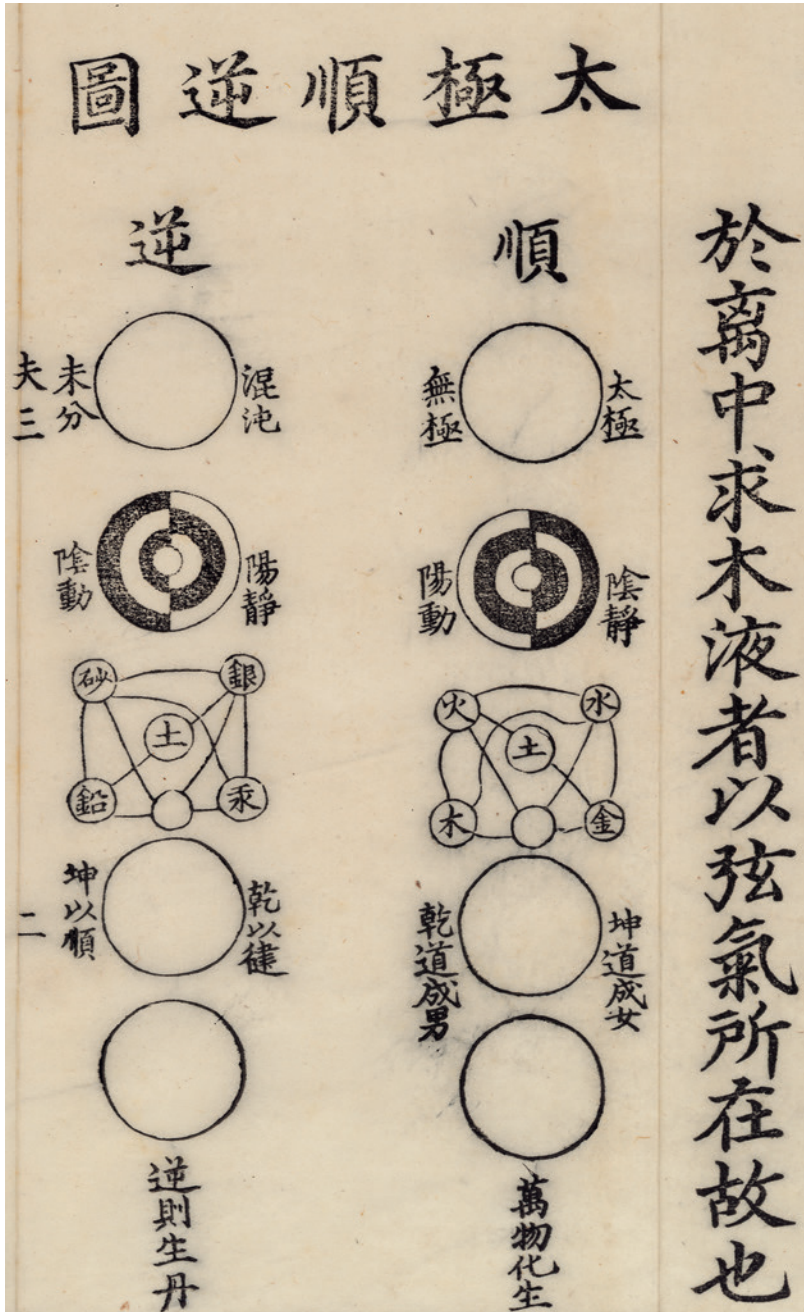 於离中求木液者以弦氣所在故也
太極順逆圖
順
太極
無極
陰靜
陽動
水
火
土
金
木
坤道成女
乾道成男
萬物化生
逆
混沌
未分
陽靜
陰動
銀
砂
土
汞
鉛
乾以健
坤以順
逆則生丹
夫三
二